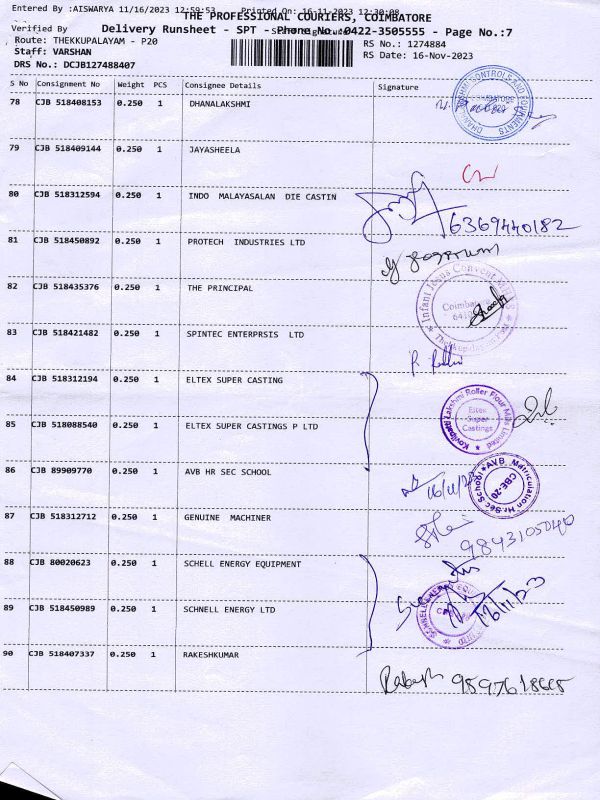 Entered By :AISWARYA 11/16/2023 12:59:53 Printed On: 16-11-2023 12:30:08
THE PROFESSIONAL COURIERS, COIMBATORE
Verified By
Delivery Runsheet - SPT - Phone No.:0422-3505555 - Page No.:7
Route: THEKKUPALAYAM - P20
RS No.: 1274884
Staff: VARSHAN
RS Date: 16-Nov-2023
DRS No.: DCJB127488407
S No Consignment No Weight PCS Consignee Details Signature
78 CJB 518408153 0.250 1 DHANALAKSHMI
79 CJB 518409144 0.250 1 JAYASHEELA
80 CJB 518312594 0.250 1 INDO MALAYASALAN DIE CASTIN
6369440182
81 CJB 518450892 0.250 1 PROTECH INDUSTRIES LTD
82 CJB 518435376 0.250 1 THE PRINCIPAL
Infant Jesus Convent
83 CJB 518421482 0.250 1 SPINTEC ENTERPRSIS LTD
84 CJB 518312194 0.250 1 ELTEX SUPER CASTING
Lakshmi Roller Flour Mills Limited
Eltex
Super
Castings
85 CJB 518088540 0.250 1 ELTEX SUPER CASTINGS P LTD
86 CJB 89909770 0.250 1 AVB HR SEC SCHOOL
AVB Matriculation Hr. Sec School
CBE-20
87 CJB 518312712 0.250 1 GENUINE MACHINER
88 CJB 80020623 0.250 1 SCHELL ENERGY EQUIPMENT
89 CJB 518450989 0.250 1 SCHNELL ENERGY LTD
90 CJB 518407337 0.250 1 RAKESHKUMAR